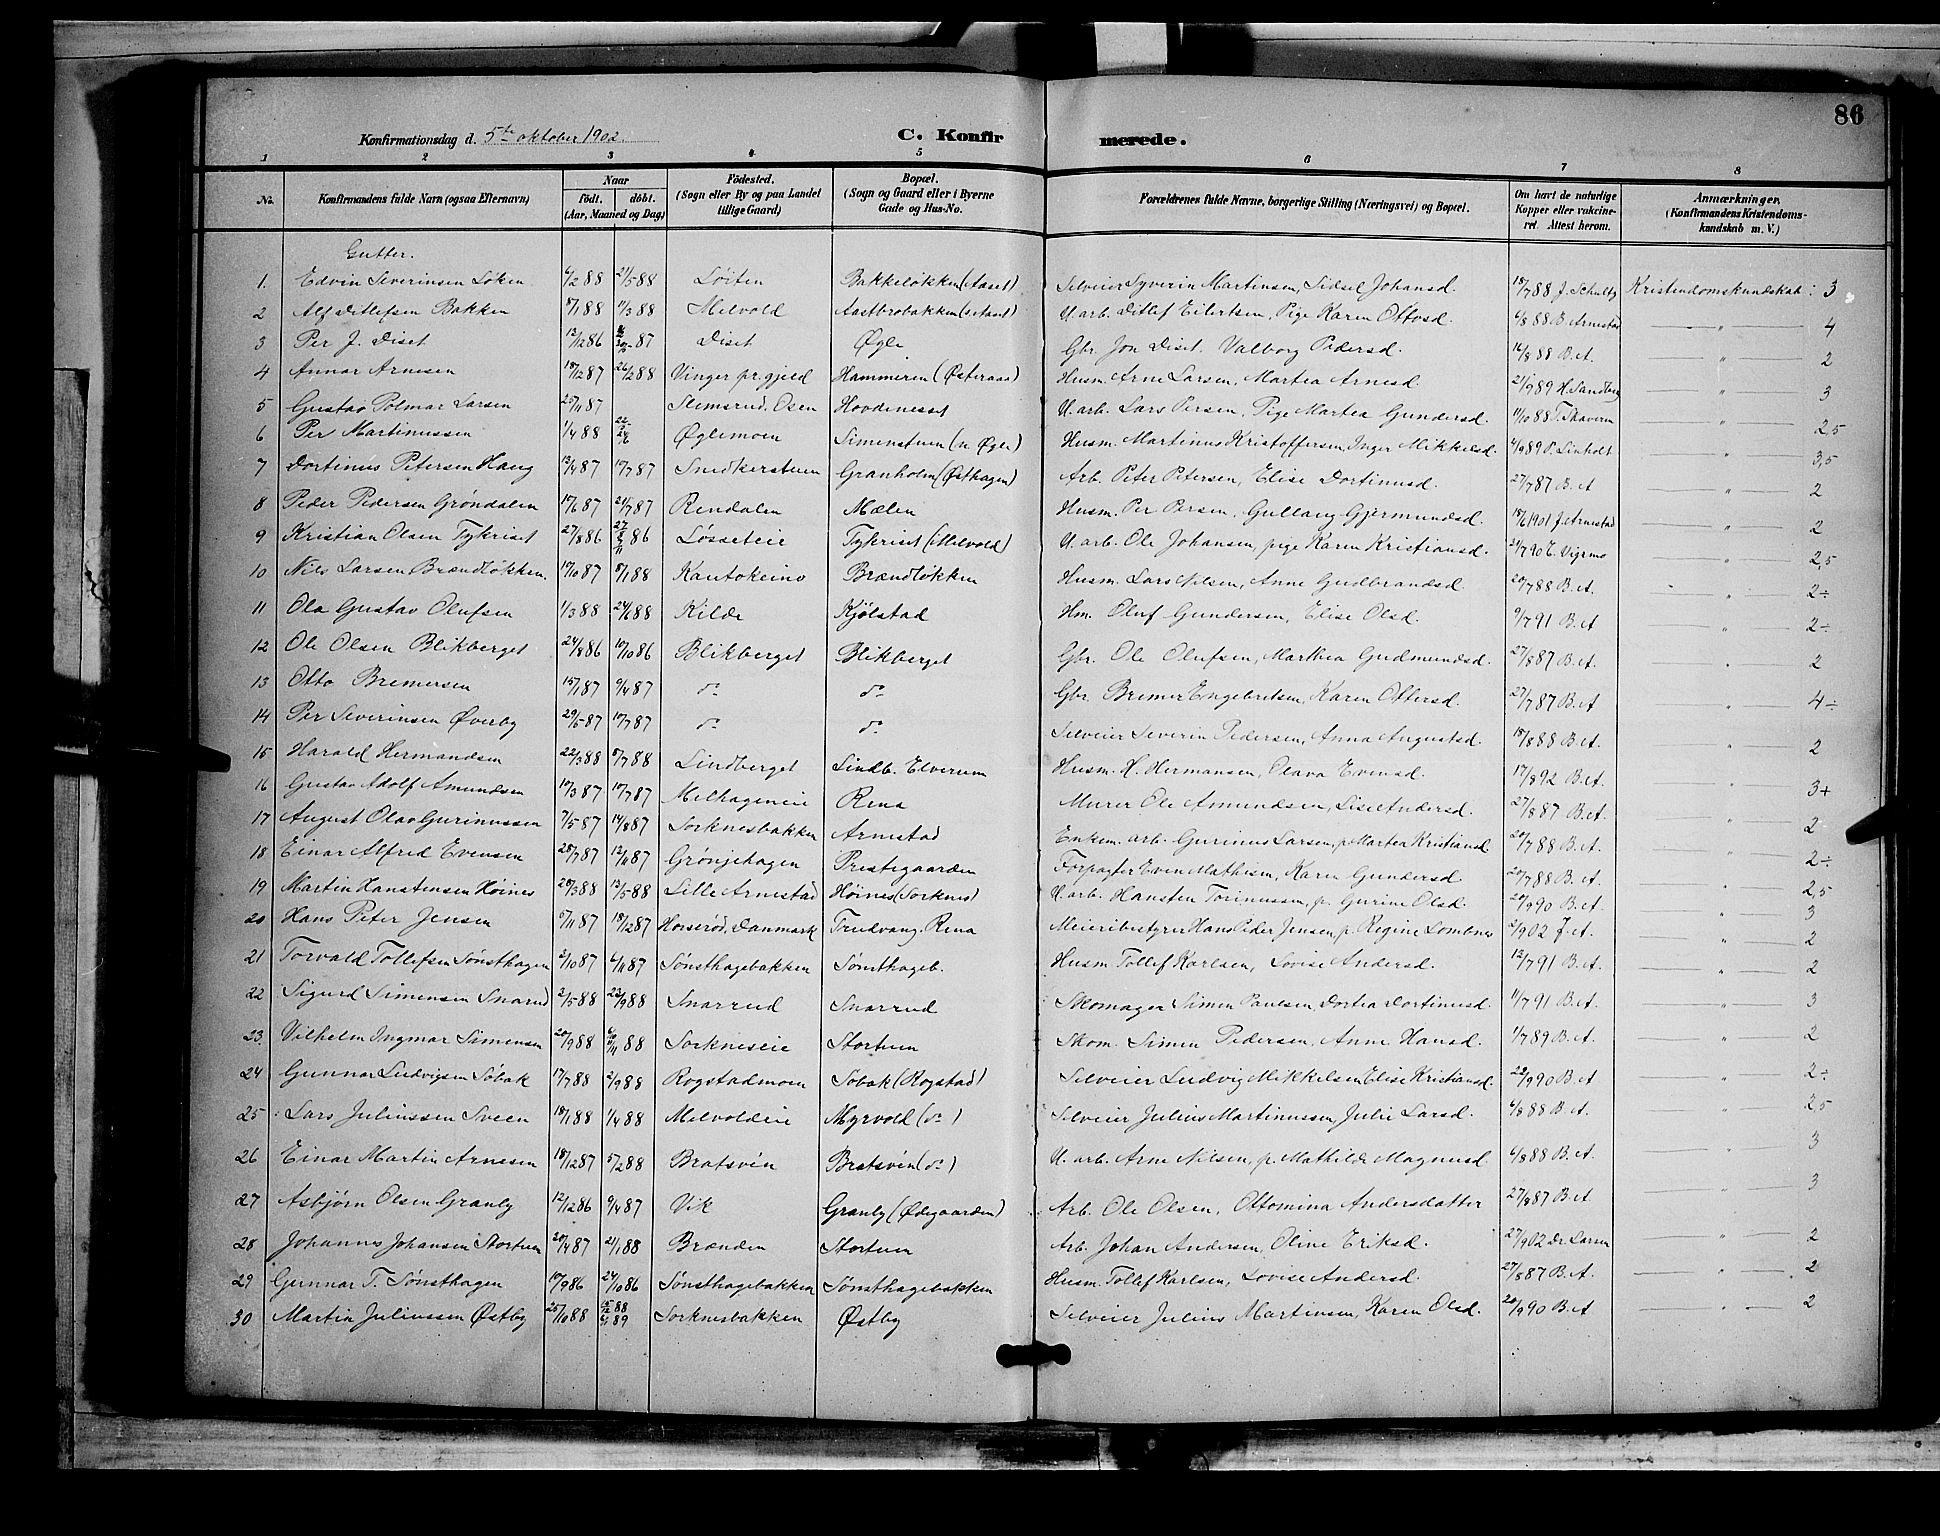 86
Konfirmationsdag d. 5te oktober 1902.
C. Konfirmerede.
1 2 3 4 5 6 7 8
No. Konfirmandens fulde Navn (ogsaa Efternavn) Naar født. døbt. (Aar, Maaned og Dag) Fødested. (Sogn eller By og paa Landet tillige Gaard) Bopæl. (Sogn og Gaard eller i Byerne Gade og Hus-No. Forældrenes fulde Navne, borgerlige Stilling (Næringsvei) og Bopæl. Om havt de naturlige Kopper eller vakcineret. Attest herom. Anmærkninger. (Konfirmandens Kristendomskundskab m. V.)
Gutter.
1. Edvin Severinsen Løken 6/2 88 21/5 88 Løiten Bakkeløkken (Aaset) Selveier Syverin Martinsen, Sidsel Johansd. 18/7 88 J. Schultz Kristendomskundskab: 3
2 Alf Ditlefsen Bakken 8/1 88 11/3 88 Melvold Aastbrobakken (s. Aast) U. arb. Ditlef Eilertsen, Pige Karen Ottosd. 6/8 88 B. Arnestad " 4
3 Per J. Diset 13/12 86 87 Diset Øgle Gbr. Jon Diset. Valborg Pedersd. 16/8 88 B. A. " 2
4 Annar Arnesen 18/12 87 26/2 88 Vinger pr.gjeld Hammeren (Østeraas) Husm. Arne Larsen, Martea Arnesd. 21/9 89 H. Sandberg " 3
5 Gustav Polmar Larsen 25/11 87 Slemsrud. Osen Hovdenesset U. arb. Lars Persen, Pige Martea Gundersd. 11/10 88 T. Skavern " 2,5
6 Per Martinussen 1/4 88 Øglemoen Simenstuen (n. Øgle) Husm. Martinus Kristoffersen, Inger Mikkelsd. 4/9 89 P. Linholt " 3,5
7 Dortinus Petersen Haug 13/4 87 17/7 87 Snedkerstuen Granholm (Østhagen) Arb. Peter Petersen, Elise Dortinusd. 27/7 87 B. A " 2
8 Peder Pedersen Grøndalen 17/6 87 24/7 87 Rendalen Mælen Husm. Per Persen, Gullaug Gjermundsd. 18/6 1901 J. Arnestad " 2
9 Kristian Olsen Tykriset 27/8 86 86 Løsseteie Tykriset (Melvold) U. arb. Ole Johansen, pige Karen Kristiansd. 21/7 90 E. Vigemo " 2,5
10 Nils Larsen Brændløkken. 17/10 87 8/1 88 Kautokeino Brændløkken Husm. Lars Nilsen, Anne Gudbrandsd. 20/7 88 B. A. " 2÷
11 Ola Gustav Olufsen 1/3 88 24/6 88 Kilde Kjølstad Hm. Oluf Gundersen, Elise Olsd. 9/7 91 B. A " 2÷
12 Ole Olsen Blikberget 24/8 86 10/10 86 Blikberget Blikberget Gbr. Ole Olufsen, Marthea Gudmundsd. 27/8 87 B. A. " 2
13 Otto Bremersen 15/1 87 9/4 87 do do Gbr. Bremer Engebretsen, Karen Ottersd. 27/7 87 B. A " 4÷
14 Per Severinsen Øverby 29/5 87 17/7 87 do do Selveier Severin Pedersen, Anna Augustsd. 18/8 88 B. A. " 2
15 Harald Hermandsen 22/3 88 8/7 88 Lindberget Lindb. Elverum Husm. H. Hermansen, Olava Evensd. 17/8 92 B. A. " 3+
16 Gustav Adolf Amundsen 10/3 87 17/7 87 Melhageneie Rena Murer Ole Amundsen, Lise Andersd. 27/8 87 B. A. " 2
17 August Olav Gurinussen 7/5 87 14/8 87 Sorknesbakken Arnestad Enkem. arb. Gurinus Larsen, p. Martea Kristiansd. 20/7 88 B. A. " 2÷
18 Einar Alfred Evensen 28/7 87 12/11 87 Grønjehagen Prestegaarden Forpagter Even Mathisen, Karen Gundersd. 20/7 88 B. A. " 2,5
19 Martin Hanstensen Høines 28/3 88 13/5 88 Lille Arnestad Høines (Sorknes) U. arb. Hansten Torinussen, p. Gurine Olsd. 20/9 90 B. A. " 3
20 Hans Peter Jensen 5/11 87 18/12 87 Horserød, Danmark Trudvang, Rena Meieribestyrer Hans Peder Jensen p. Regine Lombner 2/9 02 J. A. " 2
21 Torvald Tollefsen Sønsthagen 2/10 87 6/11 87 Sønsthagebakken Sønsthageb. Husm. Tollef Karlsen, Lovise Andersd. 12/7 91 B. A. " 2
22 Sigurd Simensen Snarud 2/5 88 23/9 88 Snarrud Snarrud Skomager Simen Paulsen, Dortea Dortinusd. 11/7 91 B. A. " 3
23. Vilhelm Ingmar Simensen 20/9 88 88 Sorkneseie Stortuen Skom. Simen Pedersen, Anne Hansd. 1/7 89 B. A. " 2
24 Gunnar Ludvigsen Søbak 17/7 88 2/9 88 Rogstadmoen Søbak (Rogstad) Selveier Ludvig Mikkelsen, Elise Kristiansd. 22/9 90 B. A " 2÷
25 Lars Juliussen Sveen 18/1 88 1/4 88 Melvoldeie Myrvold (do) Selveier Julius Martinussen, Julie Larsd. 6/8 88 B. A. " 2,5
26 Einar Martin Arnesen 18/12 87 5/2 88 Bratsvén Bratsvén (do) U. arb. Arne Nilsen, p. Mathilde Magnusd. 6/8 88 B. A. " 3
27 Asbjørn Olsen Granly 12/12 86 9/4 87 Vik Granly (Ødegaarden) Arb. Ole Olsen, Ottomina Andersdatter 27/8 87 B. A " 3
28 Johannes Johansen Stortuen 20/4 87 21/1 88 Brænden Stortuen Arb. Johan Andersen, Oline Eriksd. 27/9 02 Dr. Larsen " 2
29 Gunnar T. Sønsthagen 10/9 86 24/10 86 Sønsthagebakken Sønsthagebakken Husm. Tollef Karlsen, Lovise Andersd. 27/8 87 B. A. " 2
30 Martin Juliussen Østby 25/10 88 88 89 Sorknesbakken Østby Selveier Julius Martinsen, Karen Olsd. 20/9 90 B. A " 2